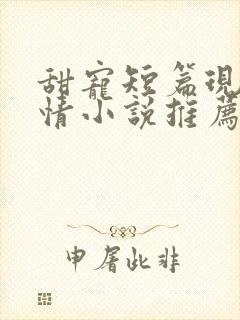 甜寵短篇現
情小說推薦
申屠此非